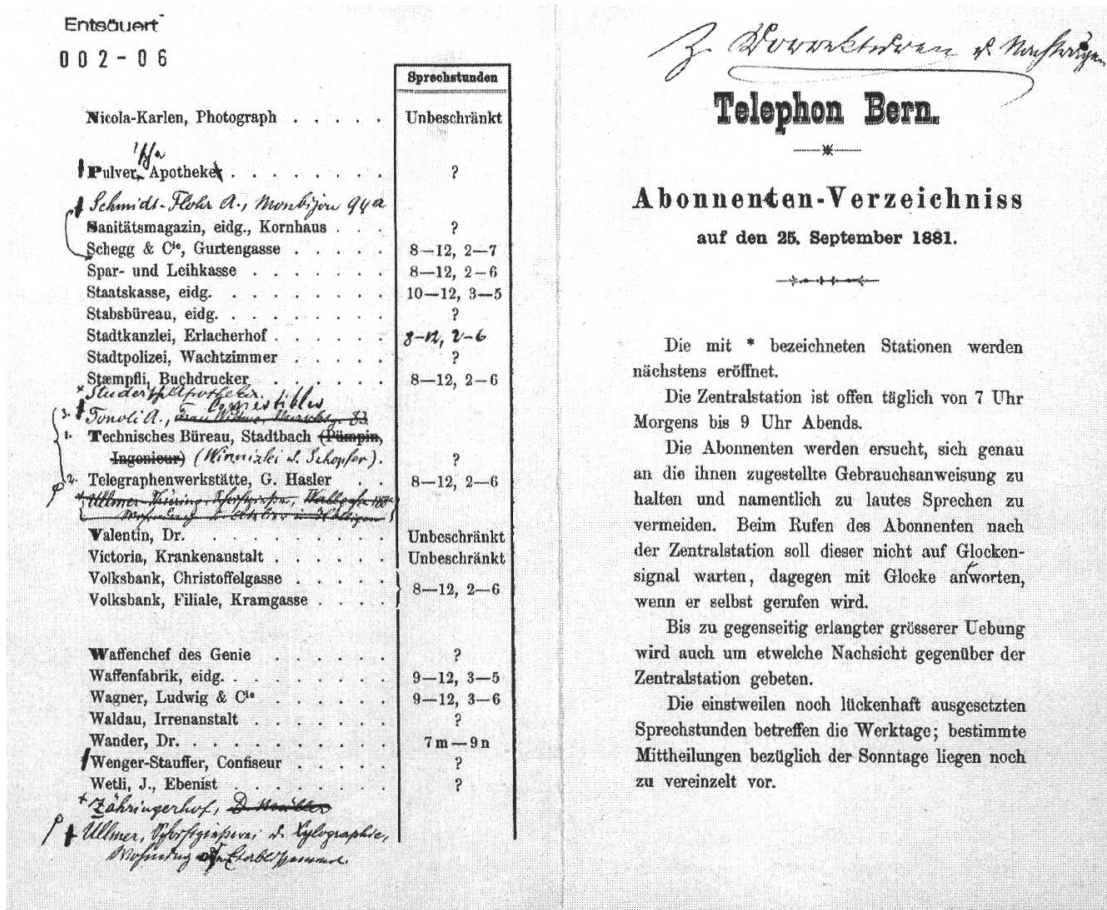 Entsäuert
002-06
Sprechstunden
Nicola-Karlen, Photograph . . . . . Unbeschränkt
Pulver, Apotheke . . . . . . . ?
Schmidt-Flohr A., Monbijou 94a
Sanitätsmagazin, eidg., Kornhaus . . . ?
Schegg & Cie, Gurtengasse . . . . 8—12, 2—7
Spar- und Leihkasse . . . . . . 8—12, 2—6
Staatskasse, eidg. . . . . . . . 10—12, 3—5
Stabsbüreau, eidg. . . . . . . . ?
Stadtkanzlei, Erlacherhof . . . . . 8—12, 2—6
Stadtpolizei, Wachtzimmer . . . . ?
Stæmpfli, Buchdrucker . . . . . 8—12, 2—6
Studer Apotheker.
Comestibles
3. Tonoli A.,
1. Technisches Büreau, Stadtbach (Pümpin,
Ingenieur) (Winnizki & Schopfer). ?
2. Telegraphenwerkstätte, G. Hasler . . 8—12, 2—6
Ullmer
Valentin, Dr. . . . . . . . . Unbeschränkt
Victoria, Krankenanstalt . . . . . Unbeschränkt
Volksbank, Christoffelgasse . . . . } 8—12, 2—6
Volksbank, Filiale, Kramgasse . . . .
Waffenchef des Genie . . . . . ?
Waffenfabrik, eidg. . . . . . . . 9—12, 3—5
Wagner, Ludwig & Cie . . . . . 9—12, 3—6
Waldau, Irrenanstalt . . . . . . ?
Wander, Dr. . . . . . . . . . 7 m — 9 n
Wenger-Stauffer, Confiseur . . . . ?
Wetli, J., Ebenist . . . . . . . ?
Zähringerhof,
Ullmer, Schriftgiesserei & Xylographie,
Z. Korrekturen & Nachträgen
Telephon Bern.
Abonnenten-Verzeichniss
auf den 25. September 1881.
Die mit * bezeichneten Stationen werden
nächstens eröffnet.
Die Zentralstation ist offen täglich von 7 Uhr
Morgens bis 9 Uhr Abends.
Die Abonnenten werden ersucht, sich genau
an die ihnen zugestellte Gebrauchsanweisung zu
halten und namentlich zu lautes Sprechen zu
vermeiden. Beim Rufen des Abonnenten nach
der Zentralstation soll dieser nicht auf Glocken-
signal warten, dagegen mit Glocke anworten,
wenn er selbst gerufen wird.
Bis zu gegenseitig erlangter grösserer Uebung
wird auch um etwelche Nachsicht gegenüber der
Zentralstation gebeten.
Die einstweilen noch lückenhaft ausgesetzten
Sprechstunden betreffen die Werktage; bestimmte
Mittheilungen bezüglich der Sonntage liegen noch
zu vereinzelt vor.